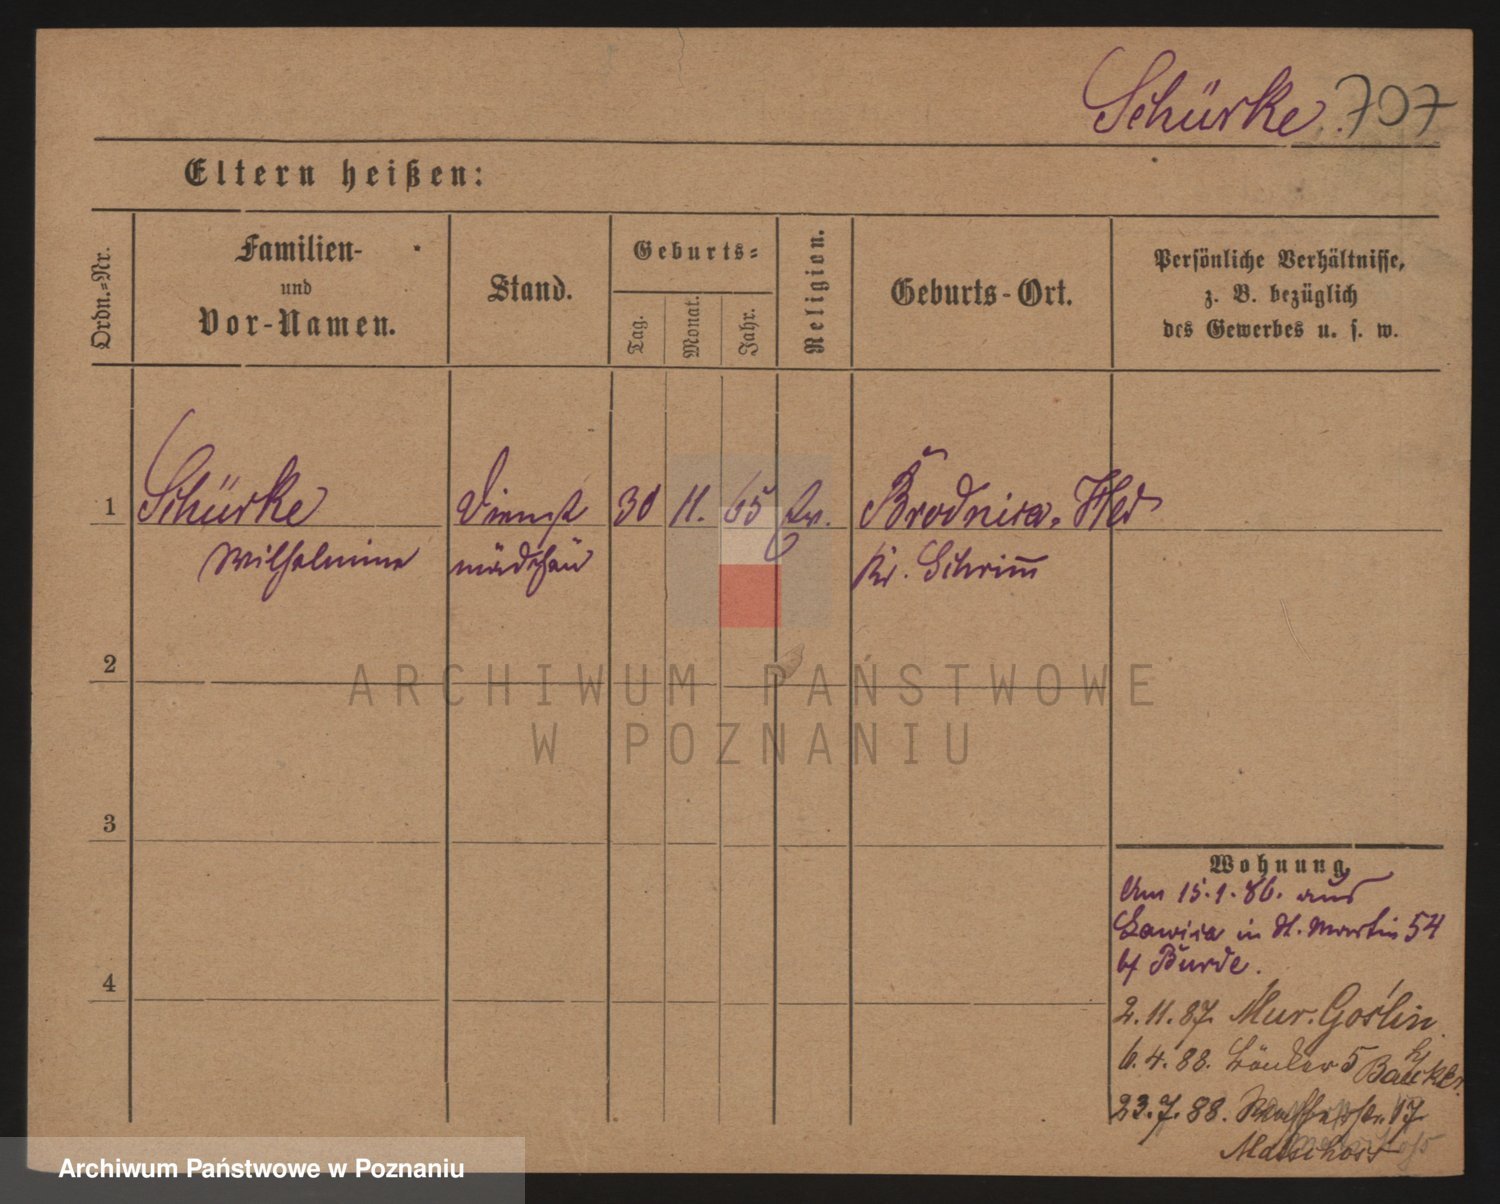 Schürke. 707
Eltern heißen:
Ordn.-Nr.
Familien-
und
Vor-Namen.
Stand.
Geburts-
Tag.
Monat.
Jahr.
Religion.
Geburts-Ort.
Persönliche Verhältnisse,
z. B. bezüglich
des Gewerbes u. s. w.
1 Schürke Dienst 30 11. 65 Ev. Brodnica,
Wilhelmine mädchen Kr. Schrim̅
2
3
4
Wohnung
Am 15.1.86. aus
Lawica in St. Martin 54
b/ Burde.
2.11.87. Mur. Goslin.
6.4.88. 5 b/
23.7.88. 17
Matschoss
ARCHIWUM PAŃSTWOWE
W POZNANIU
Archiwum Państwowe w Poznaniu